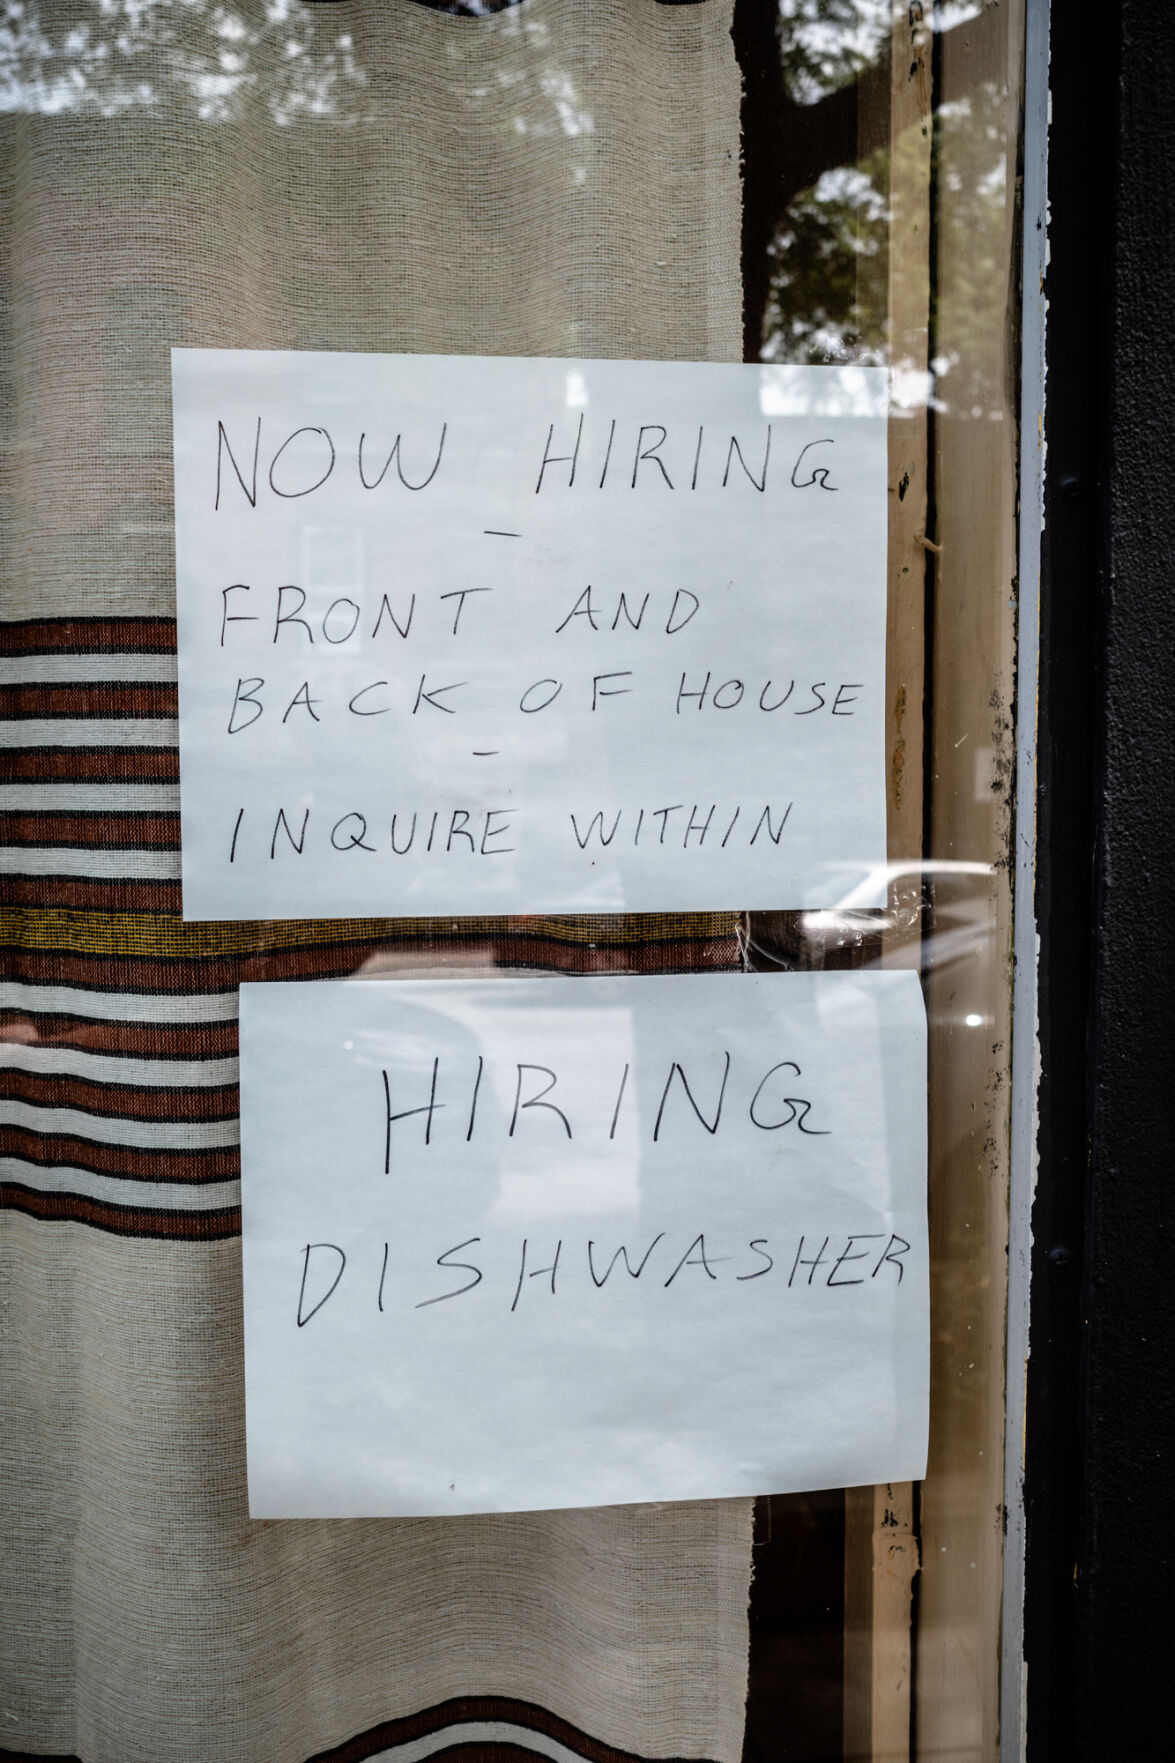 NOW HIRING
-
FRONT AND
BACK OF HOUSE
-
INQUIRE WITHIN
HIRING
DISHWASHER